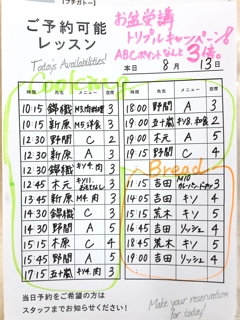 【プチガトー】
ご予約可能
レッスン
Today's Availabilities!
お盆受講
トリプルキャンペーン!
ABCポイントなんと3倍。
本日 8月 13日
Cooking
時間 先生 メニュー 空席
10:15 錦織 M3.肉料理 3
10:15 新原 M5.洋食 3
12:30 野間 C 2
12:30 新原 A 2
12:30 錦織 キソ4.肉 3
12:45 木元 3
13:45 新原 M4.肉 3
14:30 錦織 C 3
14:30 新原 C 2
14:45 野間 A 5
15:15 木原 C 4
15:45 野間 A 5
17:15 五十嵐 キソ4.肉 3
時間 先生 メニュー 空席
18:00 野間 A 3
19:00 五十嵐 キソ8.和食 2
19:15 木元 C 2
19:15 野間 A 4
Bread
11:15 吉田 M10 3
14:05 吉田 キソ 4
15:15 荒木 キソ 5
16:45 吉田 リッシュ 4
18:45 荒木 キソ 5
19:00 吉田 リッシュ 4
当日予約をご希望の方は
スタッフまでお知らせください!
Make your reservation
for today!